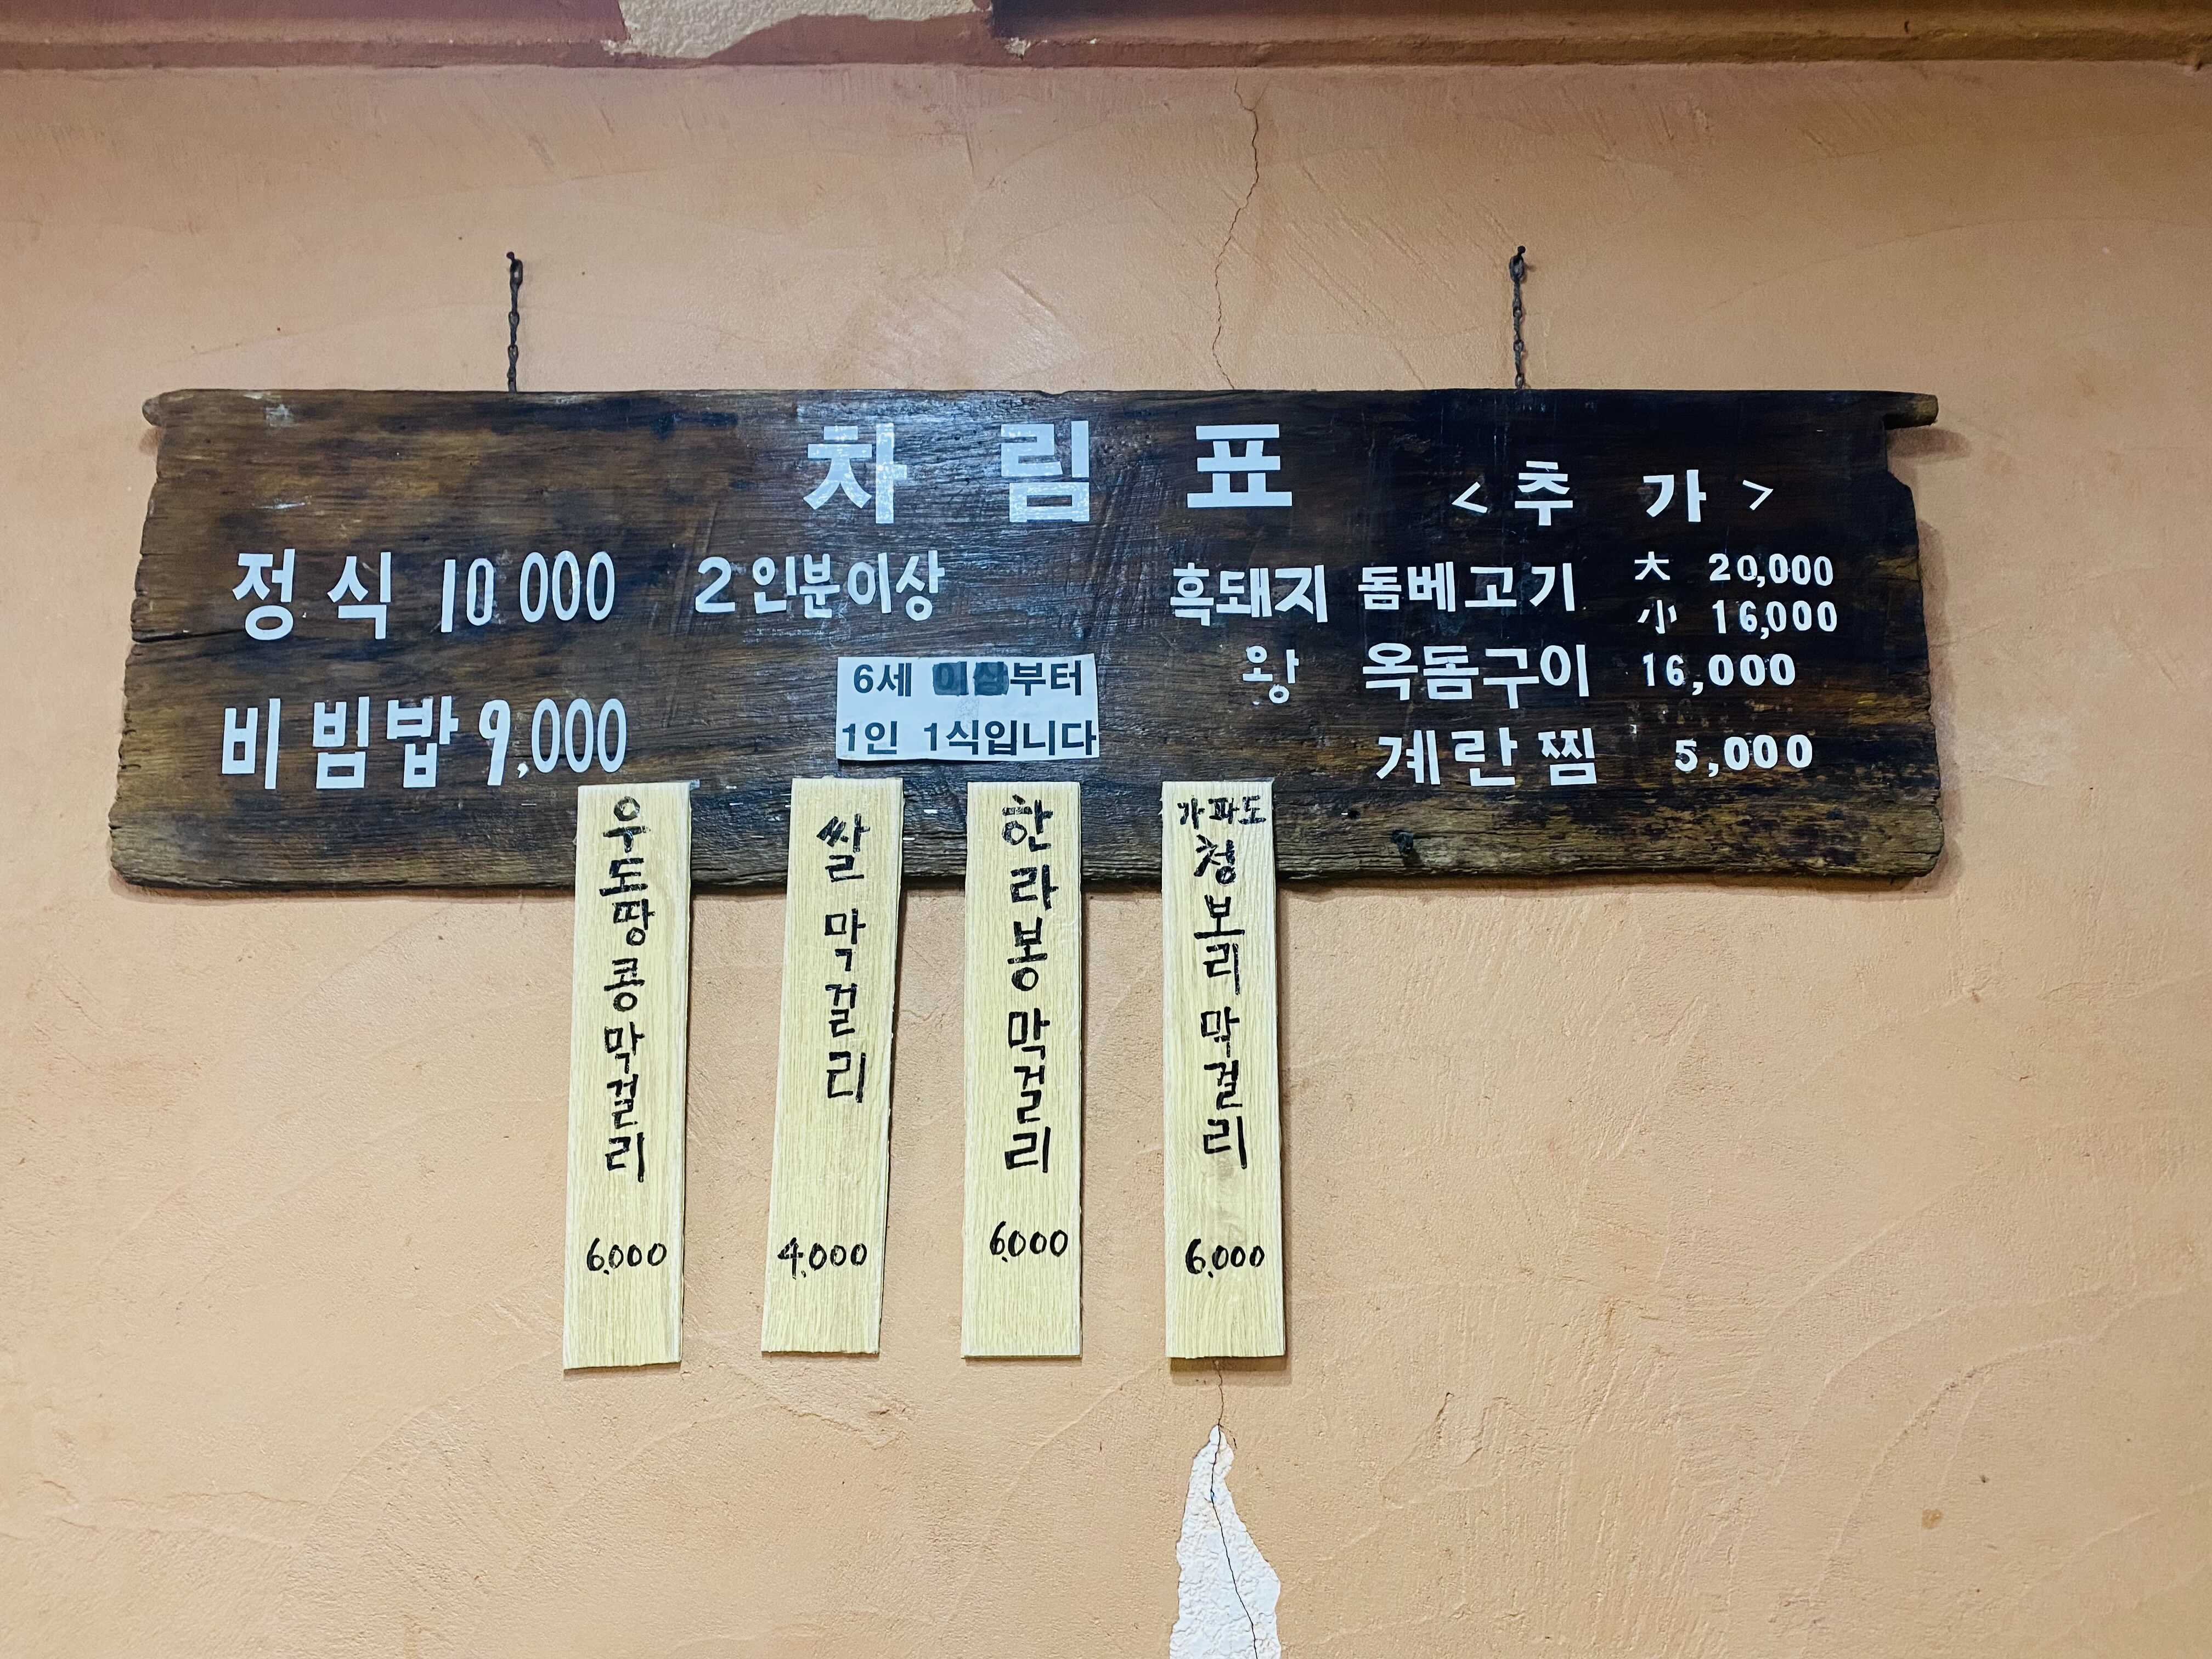 차림표
정식 10 000 2인분이상
비빔밥 9,000
6세 이상부터
1인 1식입니다
<추 가>
흑돼지 돔베고기 大 20,000
小 16,000
왕 옥돔구이 16,000
계란찜 5,000
우도땅콩막걸리
6,000
쌀막걸리
4,000
한라봉막걸리
6,000
가파도
청보리막걸리
6,000